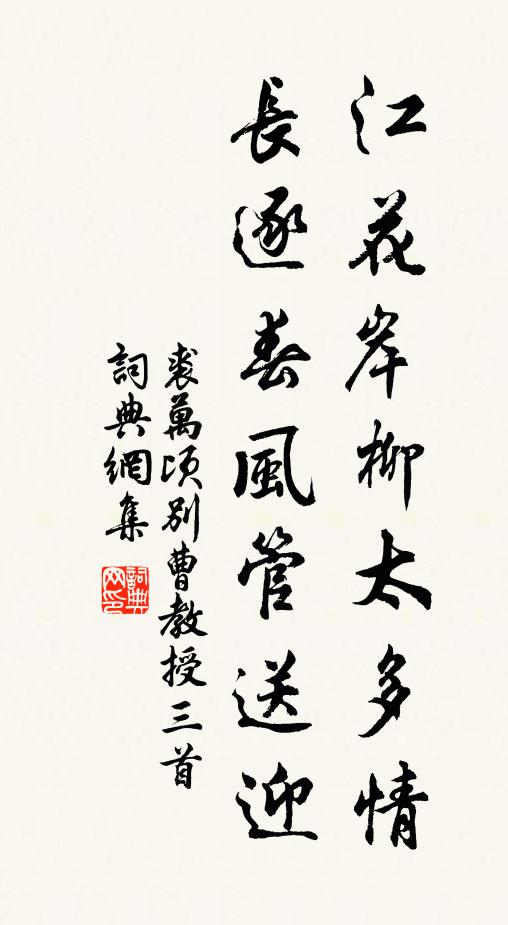 江花岸柳太多情
長逐春風管送迎
裘萬頃別曹教授三首
詞典網集
詞典网印